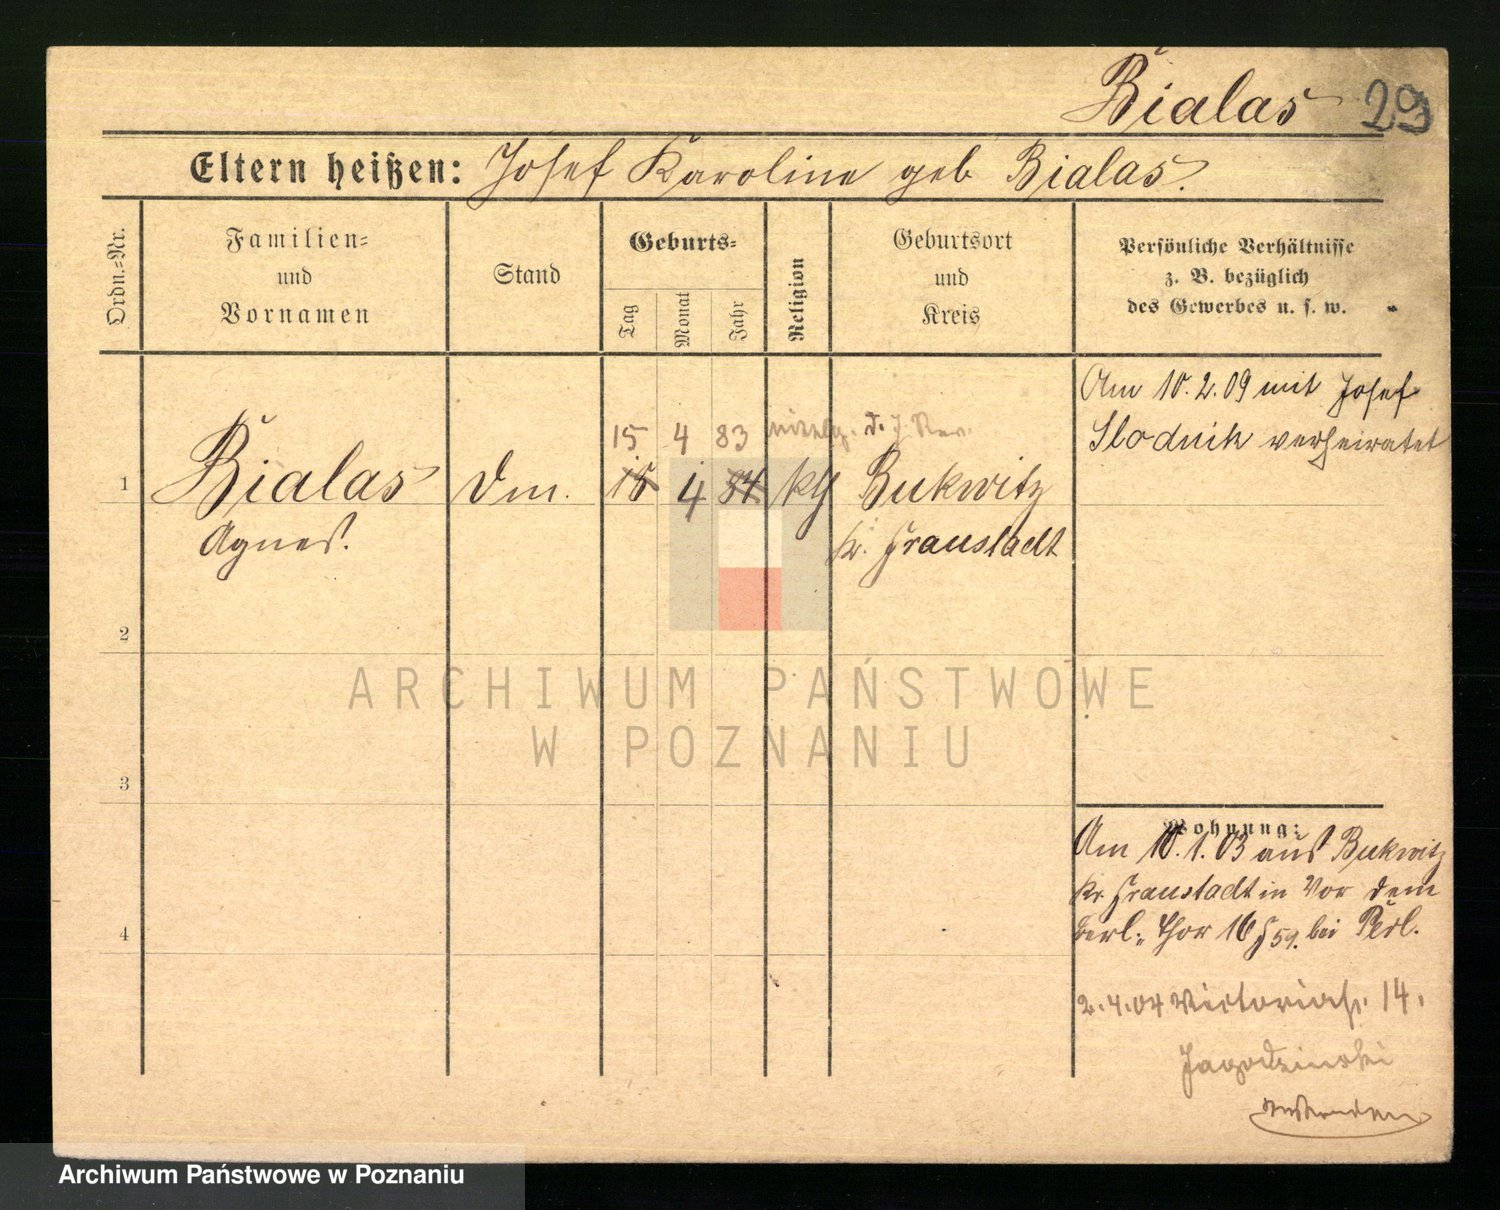 Bialas 29
Eltern heißen: Josef Karoline geb Bialas.
Ordn.=Nr.
Familien=
und
Vornamen
Stand
Geburts=
Tag
Monat
Jahr
Religion
Geburtsort
und
Kreis
Persönliche Verhältnisse
z. B. bezüglich
des Gewerbes u. s. w.
Am 10.2.09 mit Josef
Slodnik verheiratet
15 4 83
1 Bialas Dm. 15 4 84 kth Bukwitz
Agnes. Kr. Fraustadt
2
3
4
Wohnung:
Am 10.1.03 aus Bukwitz
Kr. Fraustadt in Vor dem
Berl. Thor 16 bei
2.4.04 Victoriastr. 14.
Jagodzinski
ARCHIWUM PAŃSTWOWE
W POZNANIU
Archiwum Państwowe w Poznaniu